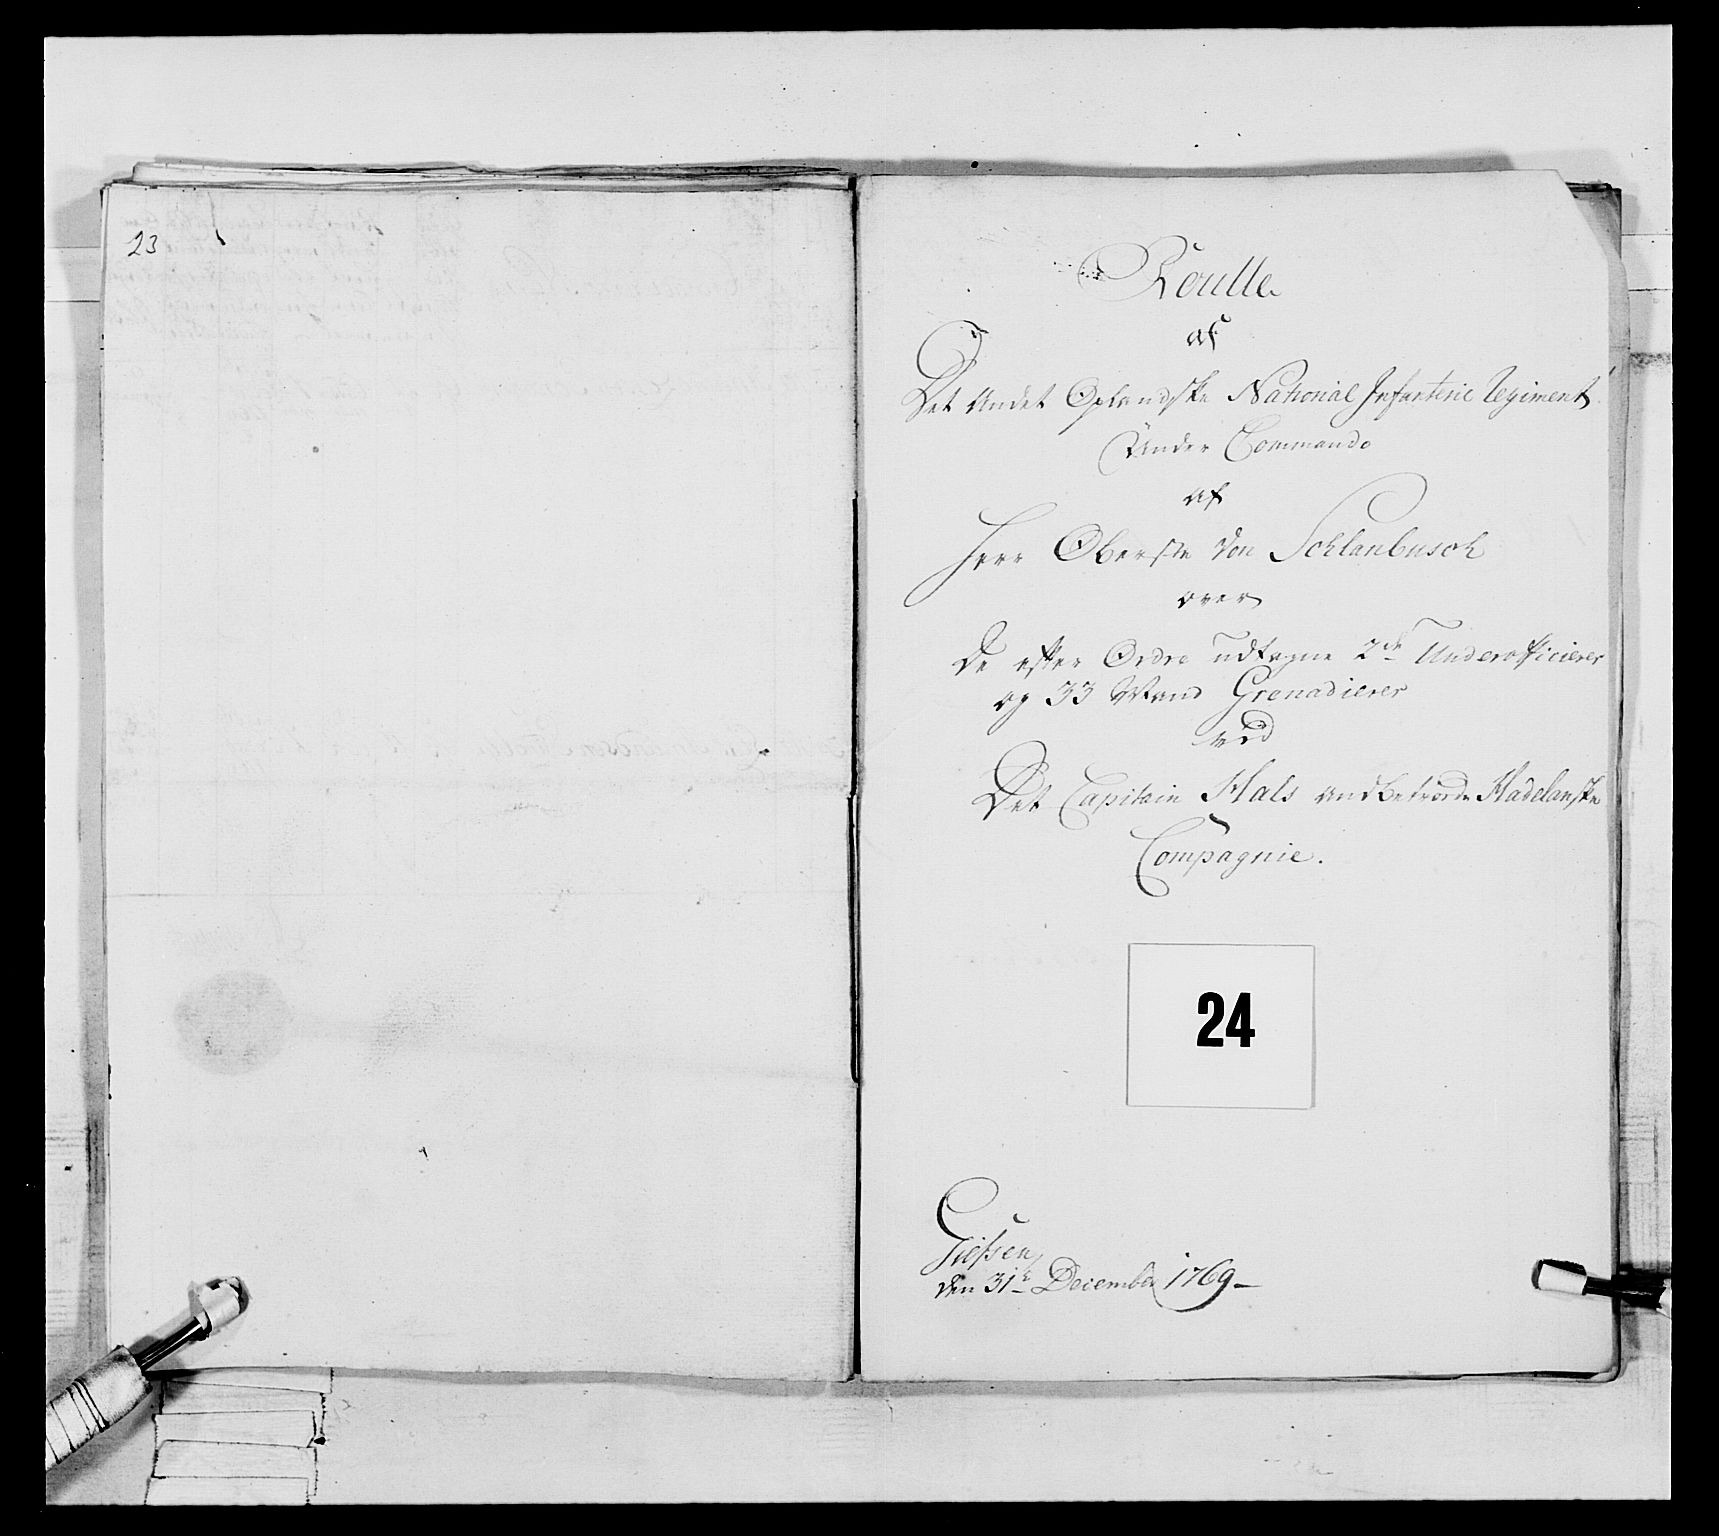 23
Roulle
af
Det Andet Oplandske National Infanterie Regiment
Under Commando
af
Herr Oberste von Schlanbusch
over
De efter Ordre udtagne 2de Underofficierer
og 33 Mand Grenadierer
ved
Det Capitain Hals andbetroede Hadelanske
Compagnie.
24
den 31te December 1769